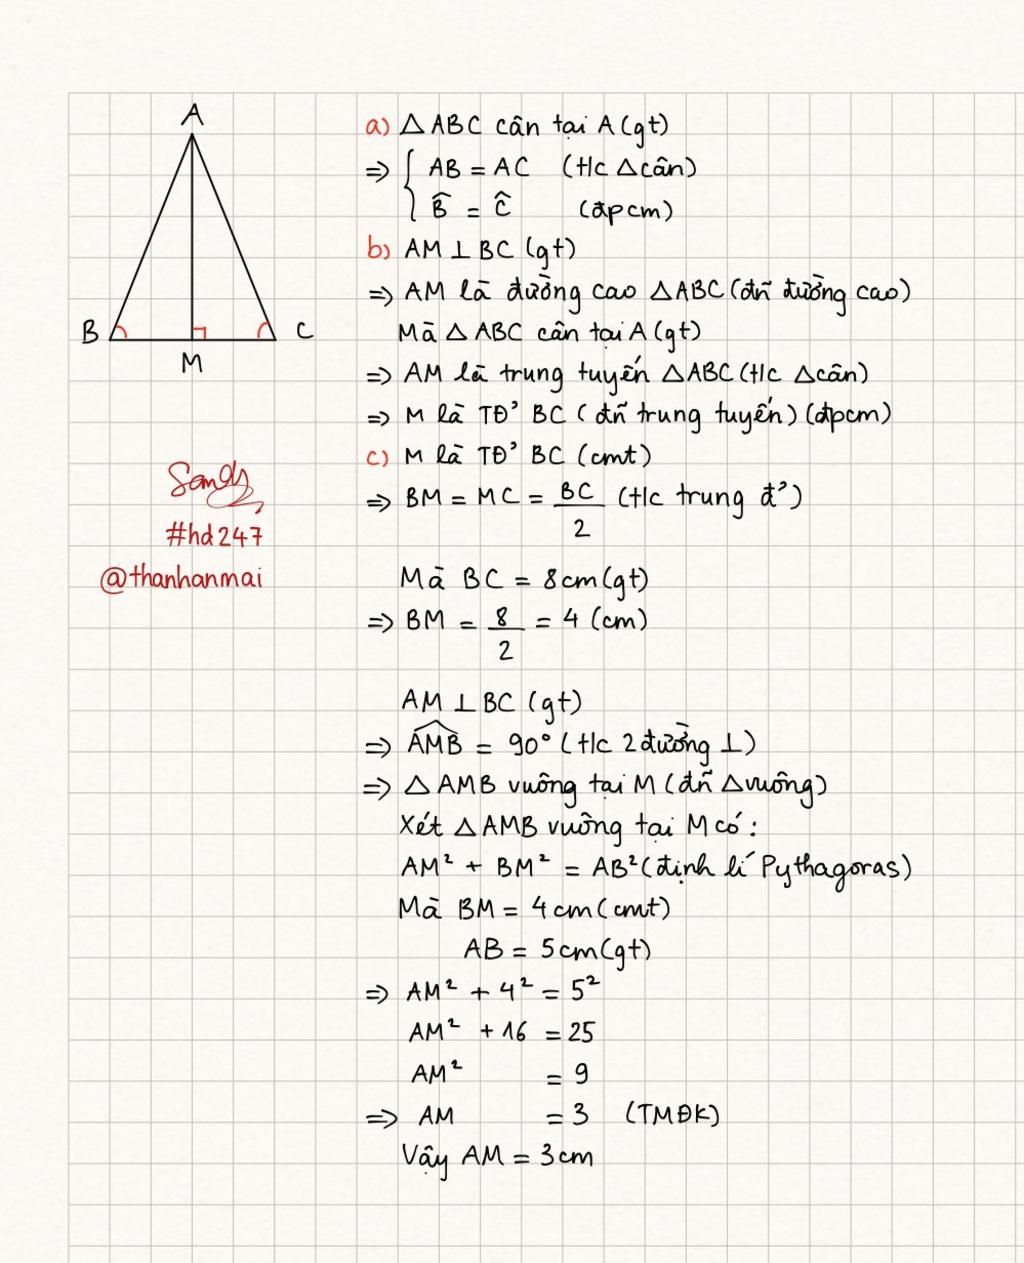 A
B
C
M
Sandy
#hd247
@thanhanmai
a) △ABC cân tại A (gt)
⇒ { AB = AC (t/c △cân)
B̂ = Ĉ (đpcm)
b) AM ⊥ BC (gt)
⇒ AM là đường cao △ABC (đn đường cao)
Mà △ABC cân tại A (gt)
⇒ AM là trung tuyến △ABC (t/c △cân)
⇒ M là TĐ' BC (đn trung tuyến) (đpcm)
c) M là TĐ' BC (cmt)
⇒ BM = MC = BC/2 (t/c trung đ')
Mà BC = 8cm (gt)
⇒ BM = 8/2 = 4 (cm)
AM ⊥ BC (gt)
⇒ AMB̂ = 90° (t/c 2 đường ⊥)
⇒ △AMB vuông tại M (đn △vuông)
Xét △AMB vuông tại M có:
AM² + BM² = AB² (định lí Pythagoras)
Mà BM = 4cm (cmt)
AB = 5cm (gt)
⇒ AM² + 4² = 5²
AM² + 16 = 25
AM² = 9
⇒ AM = 3 (TMĐK)
Vậy AM = 3cm